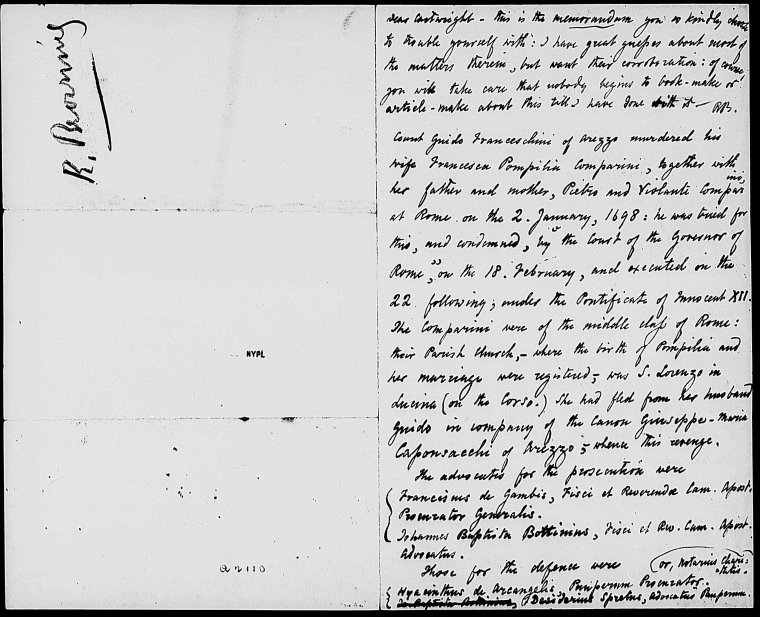 R. Browning
NYPL
a 2110
Dear Cartwright - this is the memorandum you so kindly chose
to trouble yourself with: I have great guesses about most of
the matters therein, but want their corroboration: of course
you will take care that nobody begins to book-make or
article-make about this till I have done with it - RB.
Count Guido Franceschini of Arezzo murdered his
wife Francesca Pompilia Comparini, together with
her father and mother, Pietro and Violante Comparini,
at Rome on the 2. January, 1698: he was tried for
this, and condemned, by "the Court of the Governor of
Rome", on the 18. February, and executed on the
22 following; under the Pontificate of Innocent XII.
The Comparini were of the middle class of Rome:
their Parish Church, - where the birth of Pompilia and
her marriage were registered, - was S. Lorenzo in
Lucina (on the Corso.) She had fled from her husband
Guido in company of the Canon Giuseppe-Maria
Caponsacchi of Arezzo, - whence this revenge.
The advocates for the prosecution were
Franciscus de Gambis, Fisci et Reverendæ Cam. Apost.
Procurator Generalis.
Johannes Baptista Bottinius, Fisci et Rev. Cam. Apost.
Advocatus.
Those for the defence were (or, Notarius Chari-
tatis-
Hyacinthus de Arcangelis, Pauperum Procurator.
Desiderius Spretus, Advocatus Pauperum.